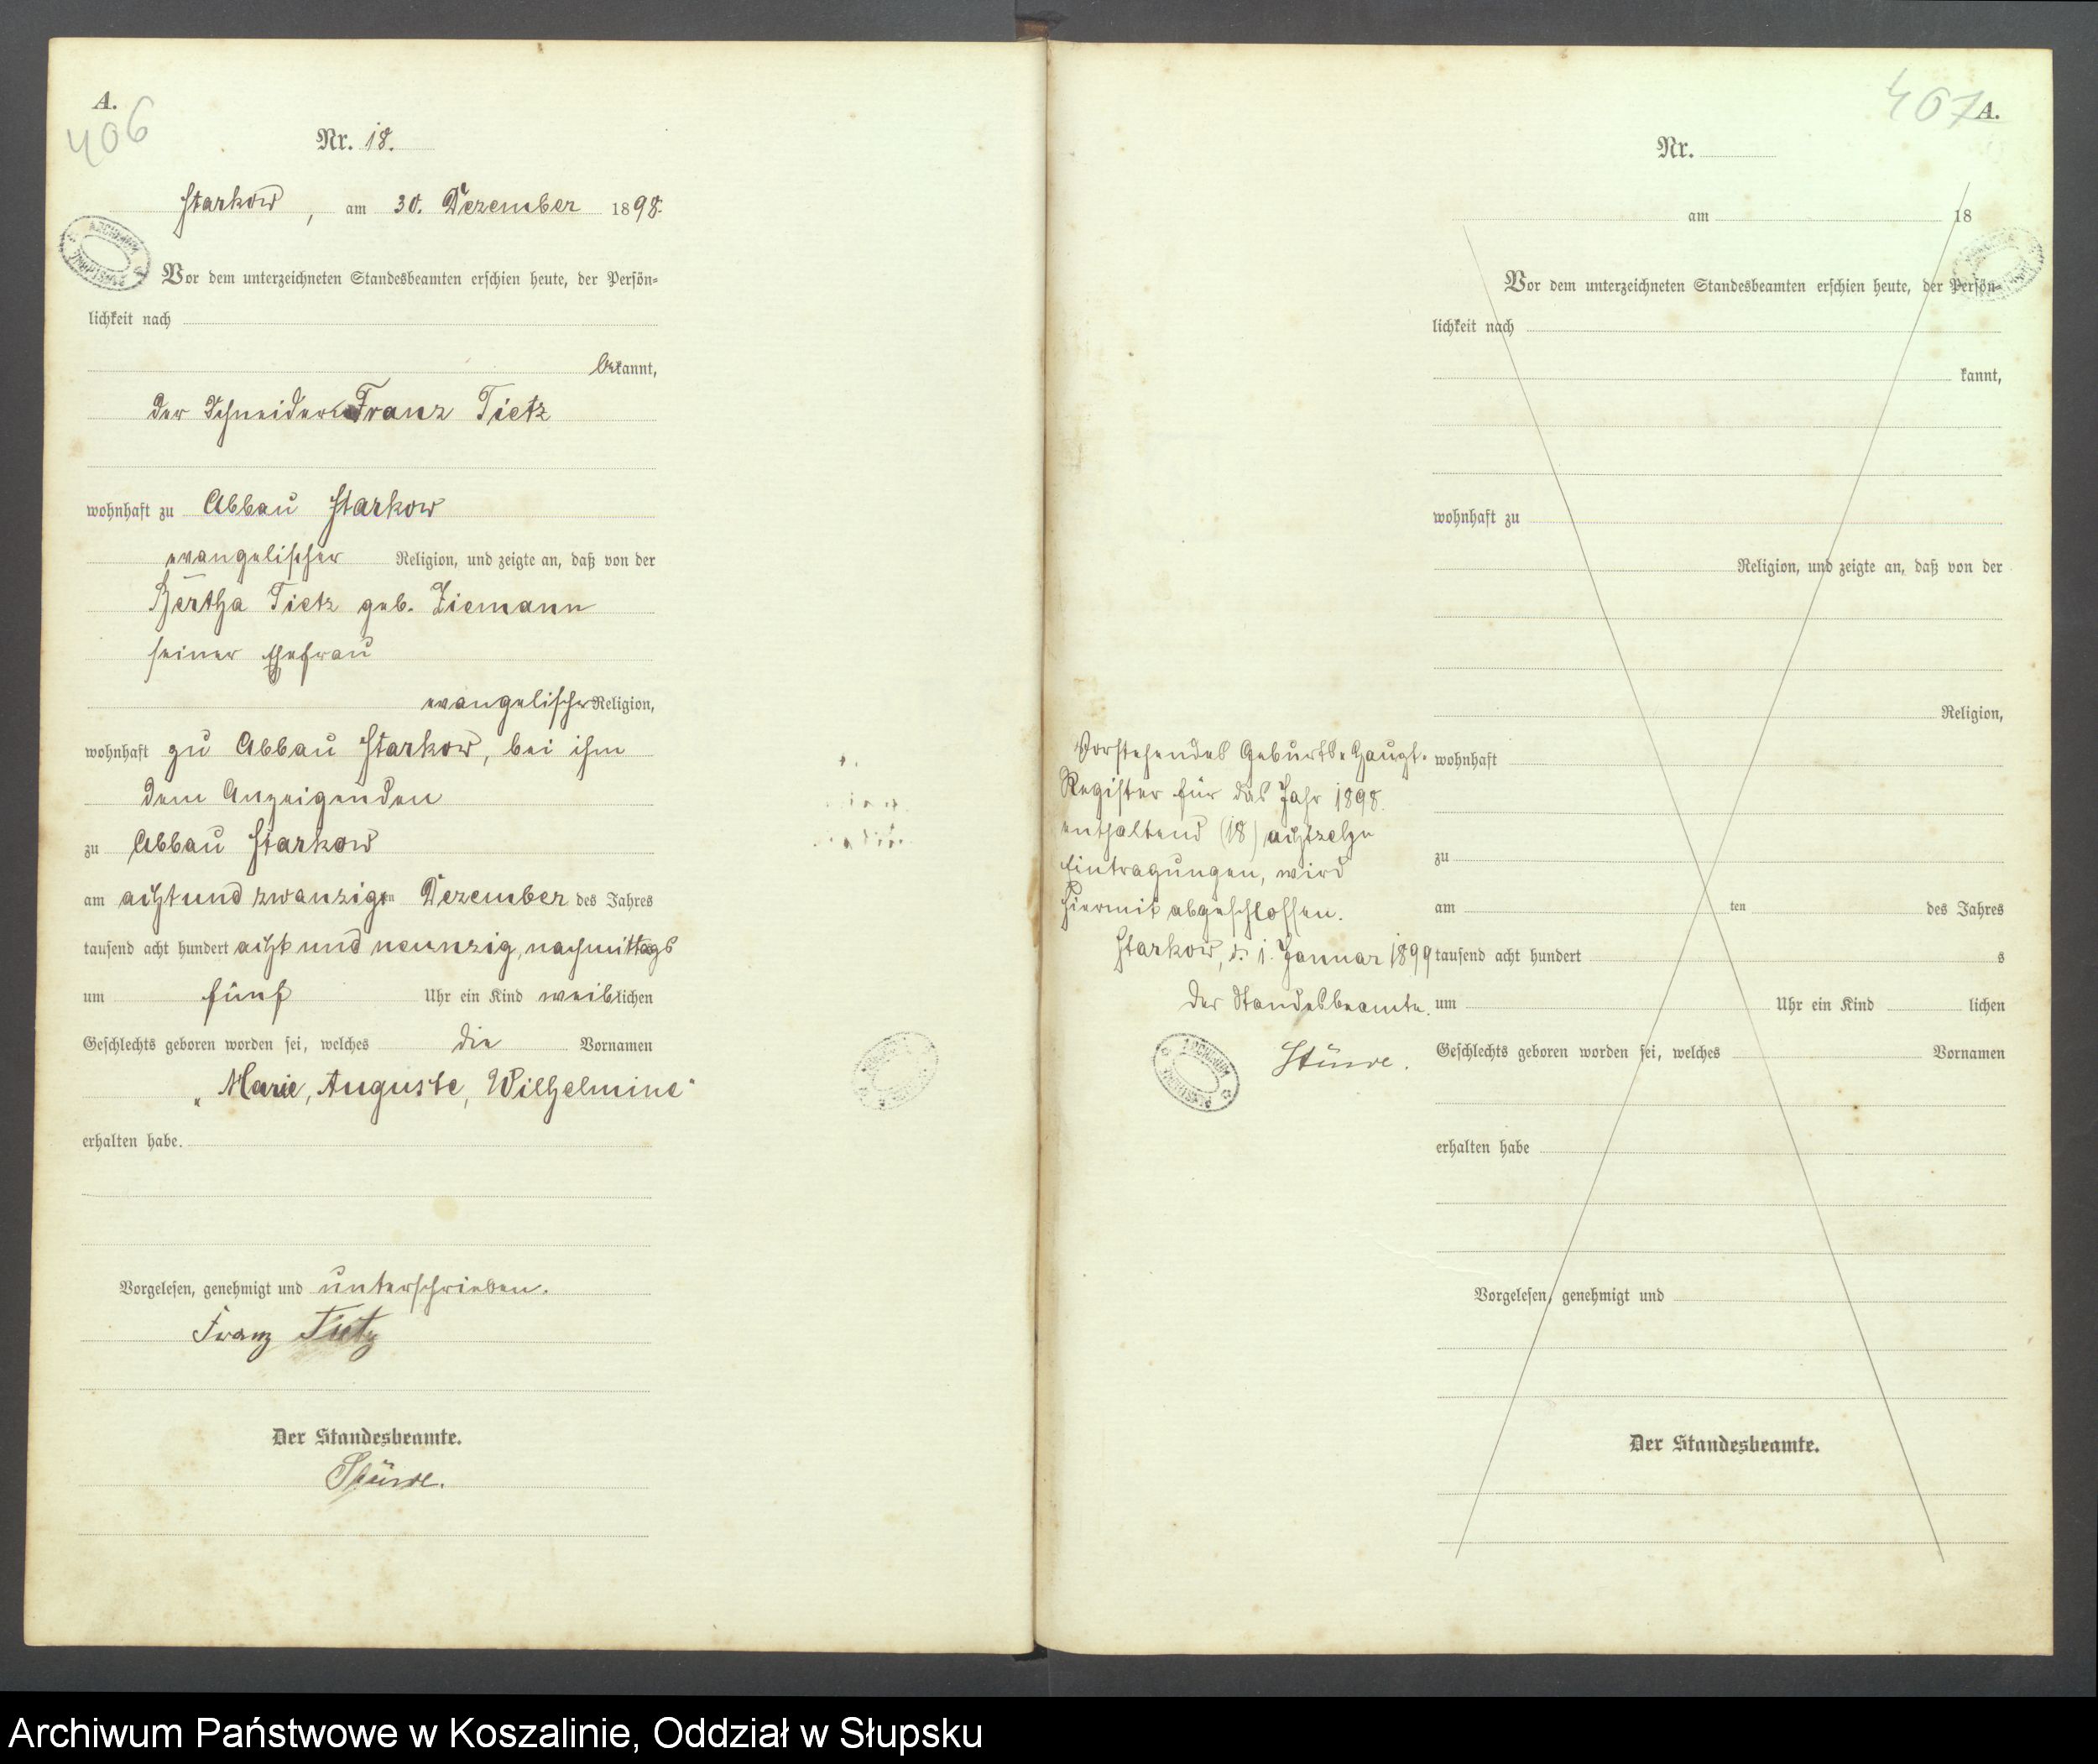 A.
406
Nr. 18.
Starkow, am 30. Dezember 1898.
Vor dem unterzeichneten Standesbeamten erschien heute, der Persön-
lichkeit nach
bekannt,
der Schneider Franz Tietz
wohnhaft zu Abbau Starkow
evangelischer Religion, und zeigte an, daß von der
Bertha Tietz geb. Ziemann
seiner Ehefrau
evangelischer Religion,
wohnhaft zu Abbau Starkow, bei ihm
dem Anzeigenden
zu Abbau Starkow
am acht und zwanzigsten Dezember des Jahres
tausend acht hundert acht und neunzig, nachmittags
um fünf Uhr ein Kind weiblichen
Geschlechts geboren worden sei, welches die Vornamen
„Marie, Auguste, Wilhelmine“
erhalten habe.
Vorgelesen, genehmigt und unterschrieben.
Franz Tietz
Der Standesbeamte.
407 A.
Nr.
am 18
Vor dem unterzeichneten Standesbeamten erschien heute, der Persön-
lichkeit nach
kannt,
wohnhaft zu
Religion, und zeigte an, daß von der
Religion,
wohnhaft
zu
am ten des Jahres
tausend acht hundert s
um Uhr ein Kind lichen
Geschlechts geboren worden sei, welches Vornamen
erhalten habe
Vorgelesen, genehmigt und
Der Standesbeamte.
Vorstehendes Geburts-Haupt-
Register für das Jahr 1898
enthaltend (18) achtzehn
Eintragungen, wird
hiermit abgeschlossen.
Starkow, d. 1. Januar 1899
Der Standesbeamte.
Archiwum Państwowe w Koszalinie, Oddział w Słupsku